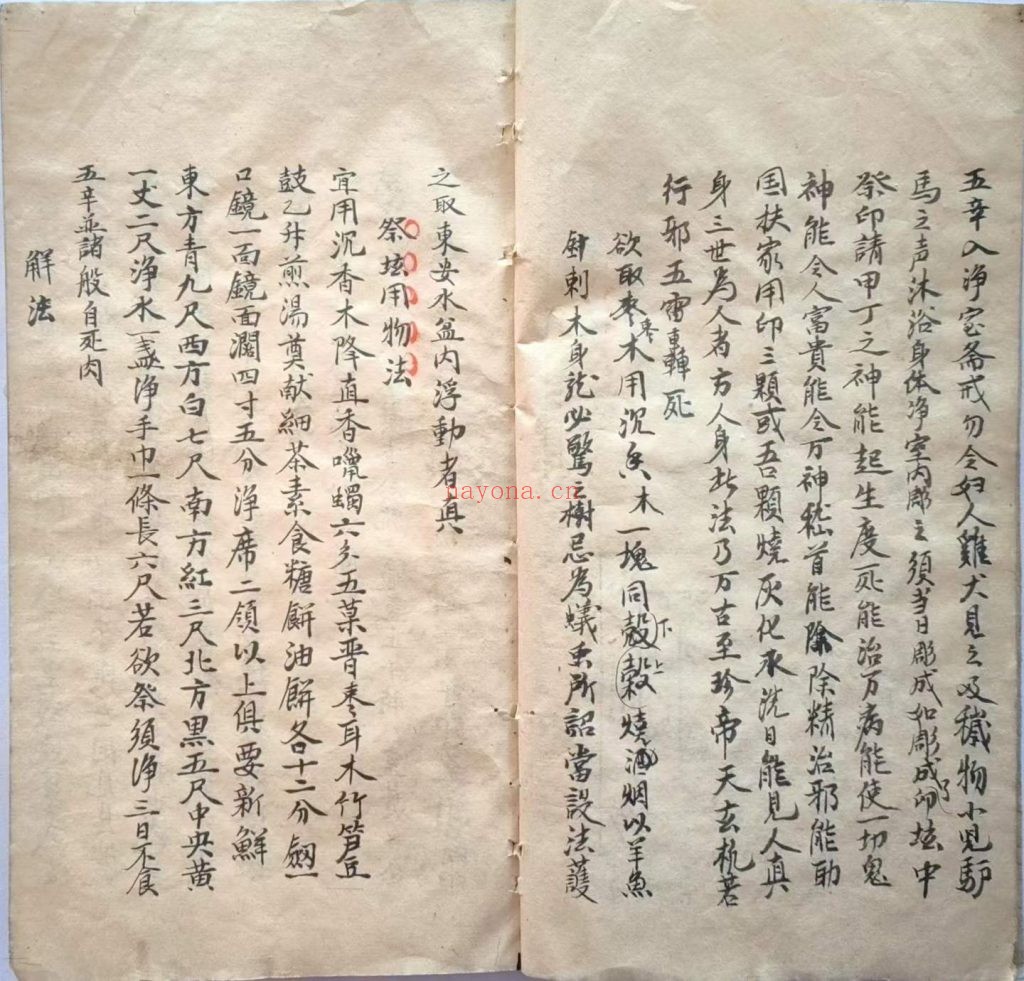 五辛入净室斋戒勿令妇人雞犬見之及穢物小児馿
馬之声沐浴身体净室內彫之须当日彫成如彫成了卯坛中
祭印請甲丁之神能起生度死能治万病能使一切鬼
神能令人富貴能令万神嵇首能除除精治邪能助
国扶家用印三顆或五顆燒灰化承洗目能見人真
身三世為人者方人身此法乃万古至珍帝天玄机若
行邪五雷車轟死
欲取枣枣木用沉香木一塊同殼下穀上燒酒烟以羊魚
針刺木身龍必驚之樹忌為蟻虫所詔當設法護
之取東安水盆內浮動者真
祭坛用物法
宜用沉香木降真香嚈蠋六分五菓晋枣耳木竹笋豆
鼓乙升煎湯奠献細茶素食糖餅油餅各十二分劒一
口鏡一面鏡面濶四寸五分淨席二領以上俱要新鮮
東方青九尺西方白七尺南方紅三尺北方黑五尺中央黄
一丈二尺净水一盏净手巾一條長六尺若欲祭须净三日不食
五辛並諸般自死肉
解法
nayona.cn